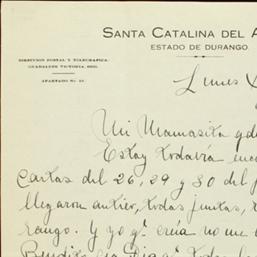 SANTA CATALINA DEL A
ESTADO DE DURANGO.
DIRECCION POSTAL Y TELEGRAFICA.
GUADALUPE VICTORIA, DGO.
APARTADO No.
Lunes
Mi Mamasita
Estoy todavía
Cartas del 26, 29 y 30 del p
llegaron antier, todas juntas,
rango. Y yo qe. creía no me
Bendito sea Dios